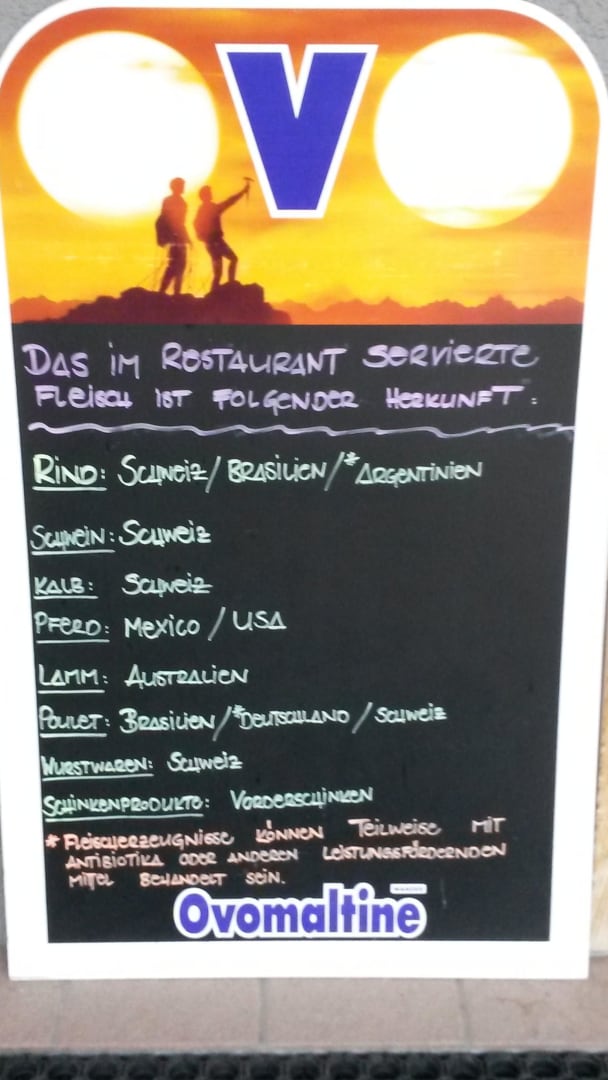 OVO
DAS im RESTAURANT SERVIERTE
FLEISCH IST FOLGENDER HERKUNFT:
RIND: SCHWEIZ/BRASILIEN/*ARGENTINIEN
SCHWEIN: SCHWEIZ
KALB: SCHWEIZ
PFERD: MEXICO / USA
LAMM: AUSTRALIEN
POULET: BRASILIEN/*DEUTSCHLAND / SCHWEIZ
WURSTWAREN: SCHWEIZ
SCHINKENPRODUKTE: VORDERSCHINKEN
* FLEISCHERZEUGNISSE KÖNNEN TEILWEISE MIT
ANTIBIOTIKA ODER ANDEREN LEISTUNGSFÖRDERNDEN
MITTEL BEHANDELT SEIN.
Ovomaltine